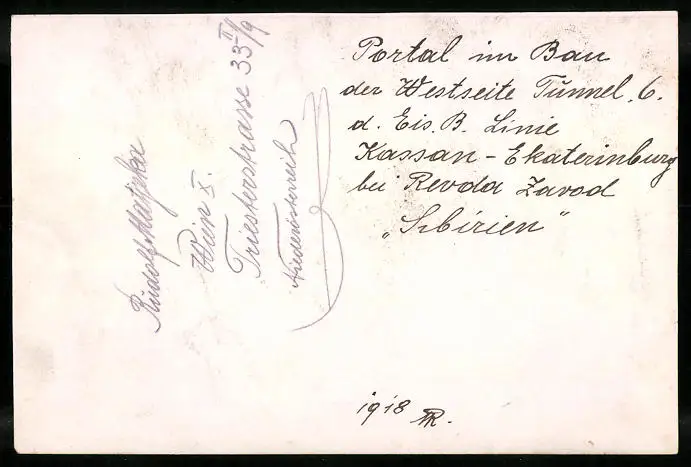 Portal im Bau
der Westseite Tunnel 6.
d. Eis. B. Linie
Kassan - Ekaterinburg
bei Revda Zavod
„Sibirien"
1918
Rudolf
Wien X.
Triesterstrasse 33 II/9
Niederösterreich